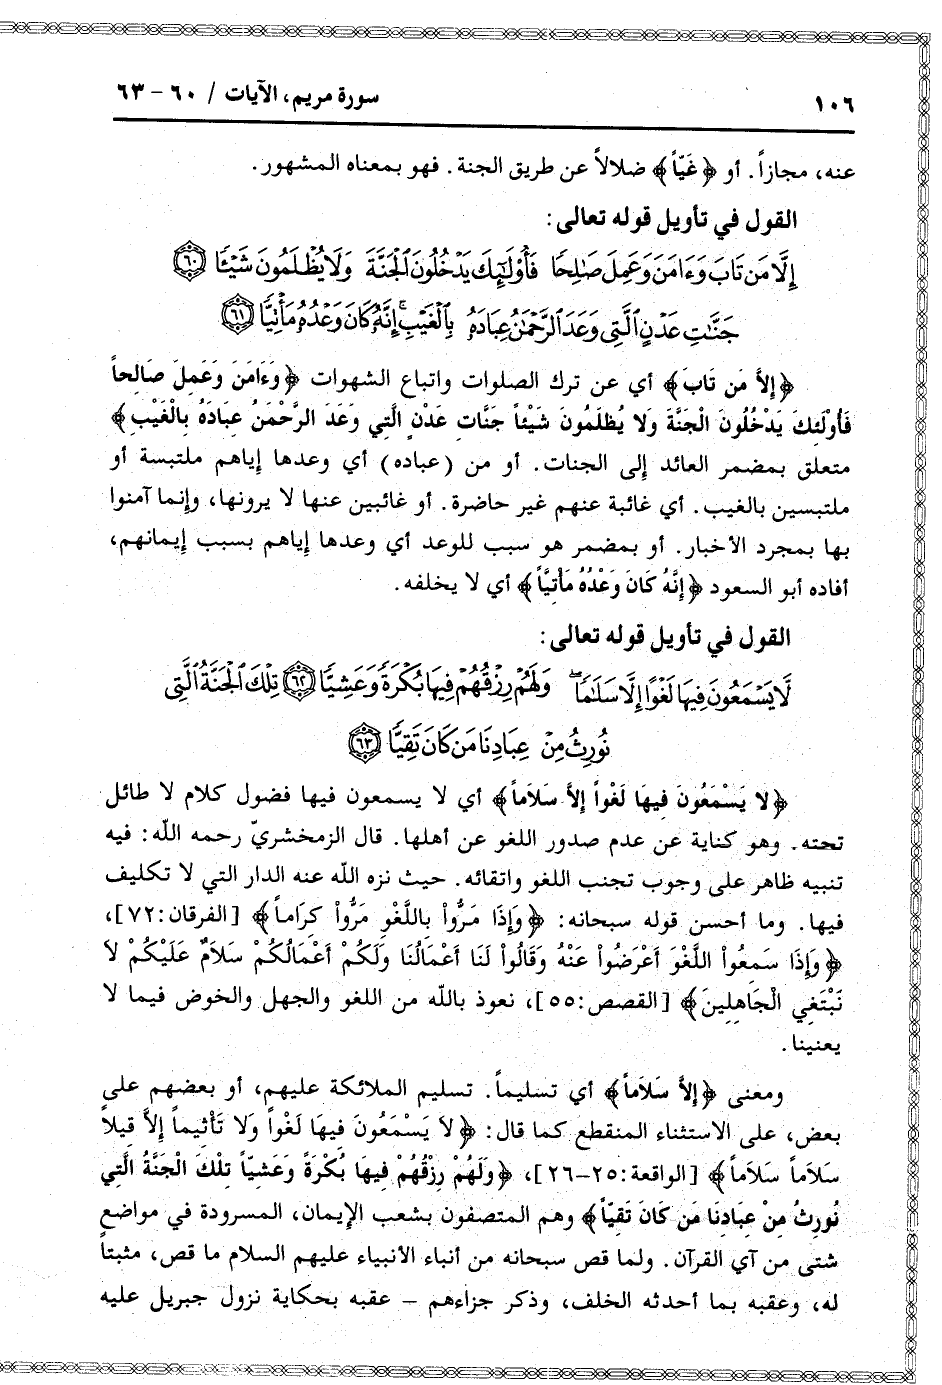 ١٠٦
سورة مريم، الآيات / ٦٠ – ٦٣
عنه، مجازاً. أو ﴿غَيّاً﴾ ضلالاً عن طريق الجنة. فهو بمعناه المشهور.
القول في تأويل قوله تعالى:
إِلَّا مَن تَابَ وَءَامَنَ وَعَمِلَ صَٰلِحًا فَأُو۟لَٰٓئِكَ يَدْخُلُونَ ٱلْجَنَّةَ وَلَا يُظْلَمُونَ شَيْـًٔا ٦٠
جَنَّٰتِ عَدْنٍ ٱلَّتِى وَعَدَ ٱلرَّحْمَٰنُ عِبَادَهُۥ بِٱلْغَيْبِ ۚ إِنَّهُۥ كَانَ وَعْدُهُۥ مَأْتِيًّا ٦١
﴿إِلاَّ مَن تَابَ﴾ أي عن ترك الصلوات واتباع الشهوات ﴿وَءَامَنَ وَعَمِلَ صَالِحاً
فَأُولَئِكَ يَدْخُلُونَ الْجَنَّةَ وَلا يُظْلَمُونَ شَيْئاً جَنَّاتِ عَدْنٍ الَّتِي وَعَدَ الرَّحْمَنُ عِبَادَهُ بِالْغَيْبِ﴾
متعلق بمضمر العائد إلى الجنات. أو من (عباده) أي وعدها إياهم ملتبسة أو
ملتبسين بالغيب. أي غائبة عنهم غير حاضرة. أو غائبين عنها لا يرونها، وإنما آمنوا
بها بمجرد الأخبار. أو بمضمر هو سبب للوعد أي وعدها إياهم بسبب إيمانهم،
أفاده أبو السعود ﴿إِنَّهُ كَانَ وَعْدُهُ مَأْتِيّاً﴾ أي لا يخلفه.
القول في تأويل قوله تعالى:
لَّا يَسْمَعُونَ فِيهَا لَغْوًا إِلَّا سَلَٰمًا ۖ وَلَهُمْ رِزْقُهُمْ فِيهَا بُكْرَةً وَعَشِيًّا ٦٢ تِلْكَ ٱلْجَنَّةُ ٱلَّتِى
نُورِثُ مِنْ عِبَادِنَا مَن كَانَ تَقِيًّا ٦٣
﴿لا يَسْمَعُونَ فِيهَا لَغْواً إِلاَّ سَلاَماً﴾ أي لا يسمعون فيها فضول كلام لا طائل
تحته. وهو كناية عن عدم صدور اللغو عن أهلها. قال الزمخشريّ رحمه الله: فيه
تنبيه ظاهر على وجوب تجنب اللغو واتقائه. حيث نزه الله عنه الدار التي لا تكليف
فيها. وما أحسن قوله سبحانه: ﴿وَإِذَا مَرُّواْ بِاللَّغْوِ مَرُّواْ كِرَاماً﴾ [الفرقان:٧٢]،
﴿وَإِذَا سَمِعُواْ اللَّغْوَ أَعْرَضُواْ عَنْهُ وَقَالُواْ لَنَا أَعْمَالُنَا وَلَكُمْ أَعْمَالُكُمْ سَلاَمٌ عَلَيْكُمْ لاَ
نَبْتَغِي الْجَاهِلِينَ﴾ [القصص:٥٥]، نعوذ بالله من اللغو والجهل والخوض فيما لا
يعنينا.
ومعنى ﴿إِلاَّ سَلاَماً﴾ أي تسليماً. تسليم الملائكة عليهم، أو بعضهم على
بعض، على الاستثناء المنقطع كما قال: ﴿لاَ يَسْمَعُونَ فِيهَا لَغْواً وَلاَ تَأْثِيماً إِلاَّ قِيلاً
سَلاَماً سَلاَماً﴾ [الواقعة:٢٥-٢٦]، ﴿وَلَهُمْ رِزْقُهُمْ فِيهَا بُكْرَةً وَعَشِيّاً تِلْكَ الْجَنَّةُ الَّتِي
نُورِثُ مِنْ عِبَادِنَا مَن كَانَ تَقِيّاً﴾ وهم المتصفون بشعب الإيمان، المسرودة في مواضع
شتى من آي القرآن. ولما قص سبحانه من أنباء الأنبياء عليهم السلام ما قص، مثبتاً
له، وعقبه بما أحدثه الخلف، وذكر جزاءهم – عقبه بحكاية نزول جبريل عليه